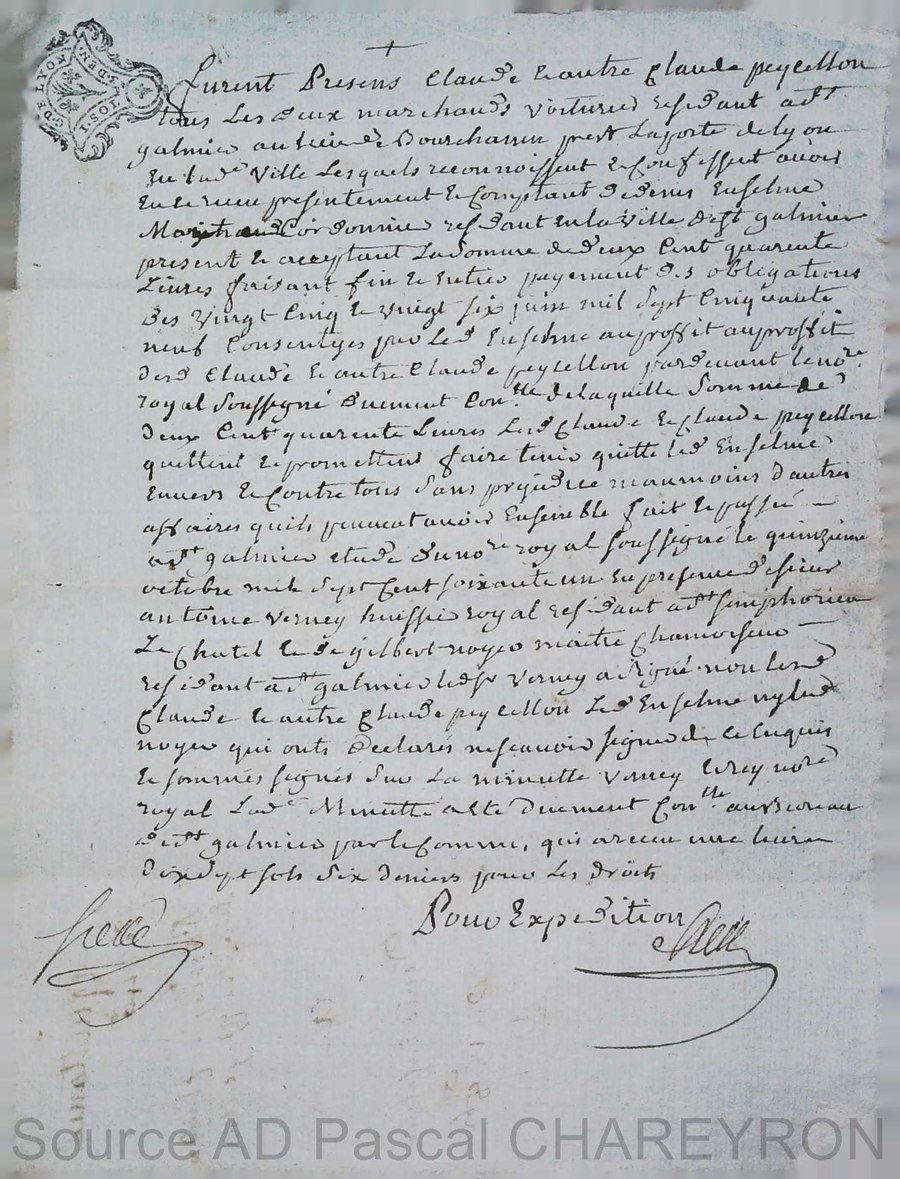 G. DE LYON
I. SOL
3 DEN
+
furent Presens Claude & autre Claude peycellon
tous Les deux marchands Voituriers residant a dt St
galmier au lieu de Bourchanin prest La porte de Lyon
En lade Ville Lesquels reconnoissent & Confessent avoir
Eu & receu presentement & Comptant de denis Enselme
Marchand Cordonnier residant En la Ville de St galmier
present & acceptant La Somme de deux Cent quarente
Livres faisant fin & Entier payement des obligations
des Vingt Cinq & Vingt Six juin mil Sept Cinquante
neuf Consenties par Led Enselme au proffit au proffit
desd Claude & autre Claude peycellon pardevant le nore
royal Soussigné duement Conlle de laquelle Somme de
deux Cent quarente Livres Lesd Claude & Claude peycellon
quittent & promettent faire tenir quitte led Enselme
Envers & Contre tous Sans préjudice neanmoins d'autres
affaires quils peuvent avoir Ensemble fait & passé
a St galmier etude du nore royal Soussigné le quinzieme
octobre mil Sept Cent soixante un En presence de sieur
antoine Verney huissier royal residant a St Simphorien
Le Chatel & de gilbert noyer maitre Chamoiseur
residant a St galmier led Sr Verney a signé non lesd
Claude & autre Claude peycellon Led Enselme ny led
noyer qui onts declarés ne scavoir signer de ce Enquis
& sommés signés Sur La minutte Verney & rey nore
royal Lade Minutte a ete Duement Conlle au Bureau
de St galmier par le Commis, qui a receu une livre
dix sept sols Six deniers pour Les droits
Pour Expedition
Source AD Pascal CHAREYRON